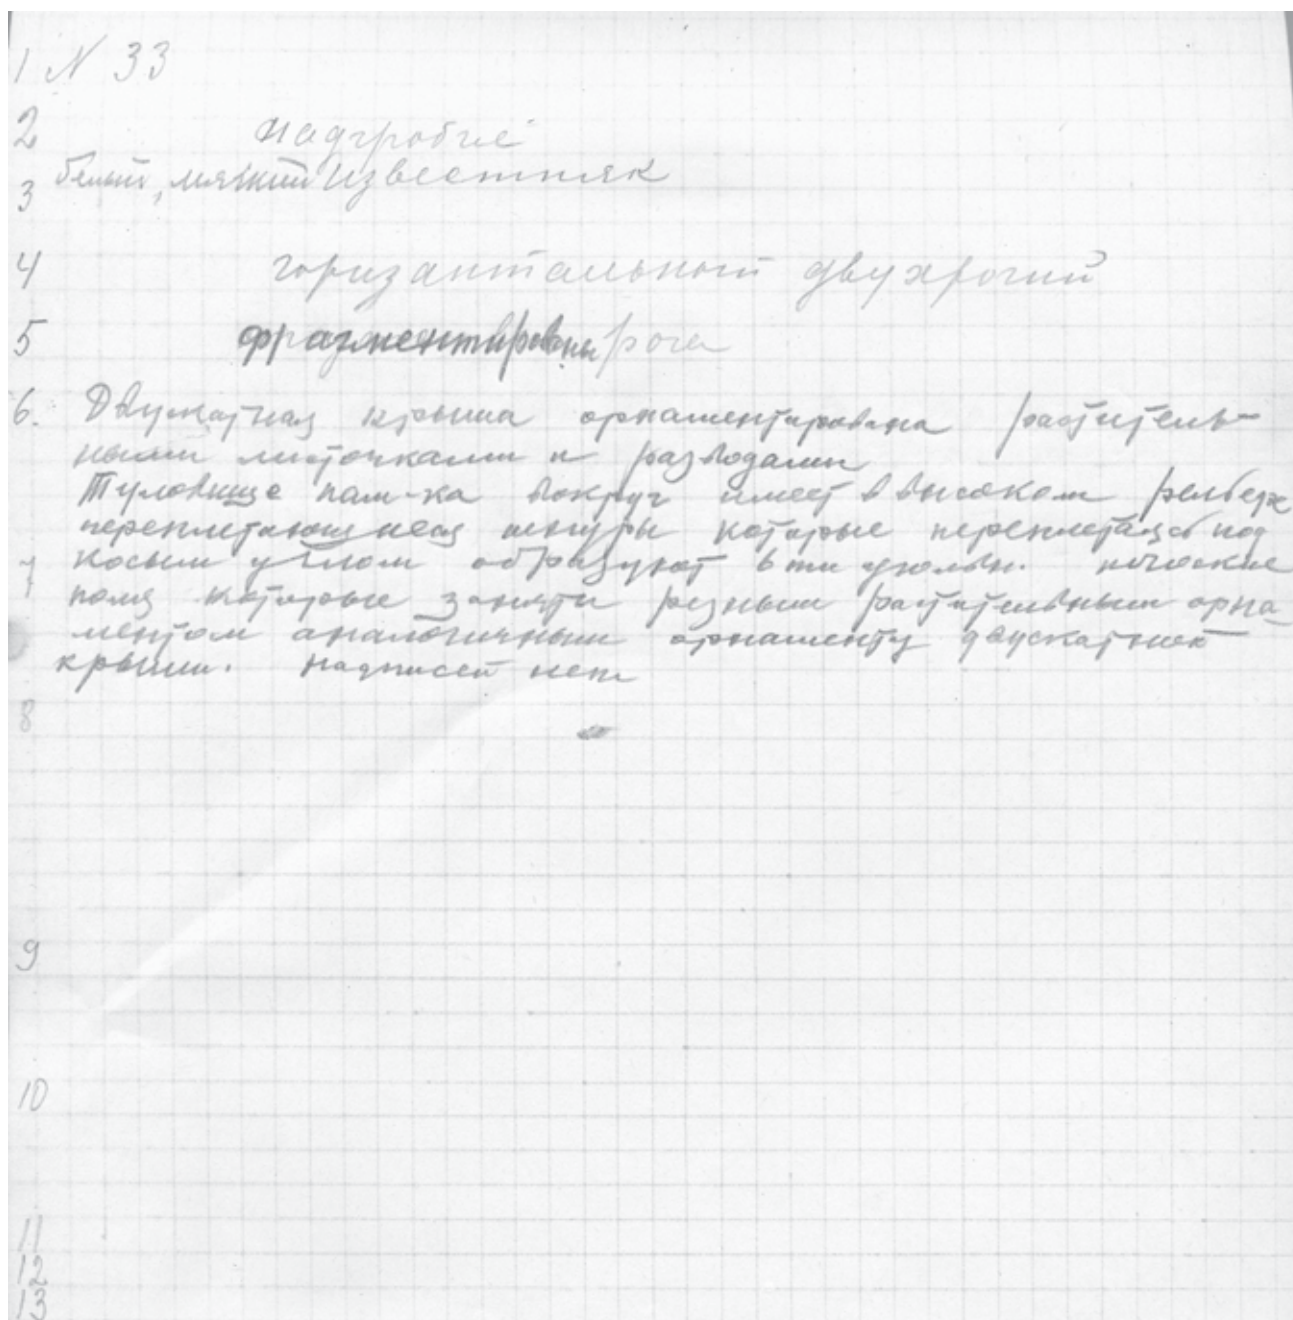 1 N 33
2 надгробие
3 белый, мягкий известняк
4 горизантальный двухрогий
5 фрагментированы рога
6. Двускатная крыша орнаментирована раститель-
ными листочками и разводами
Туловище пам-ка вокруг имеет в высоком рельефе
переплетающиеся шнуры которые переплетаясь под
7 косым углом образуют 6ти угольн. плоские
поля которые заняты резным растительным орна-
ментом аналогичным орнаменту двускатной
крыши. надписей нет
8
9
10
11
12
13